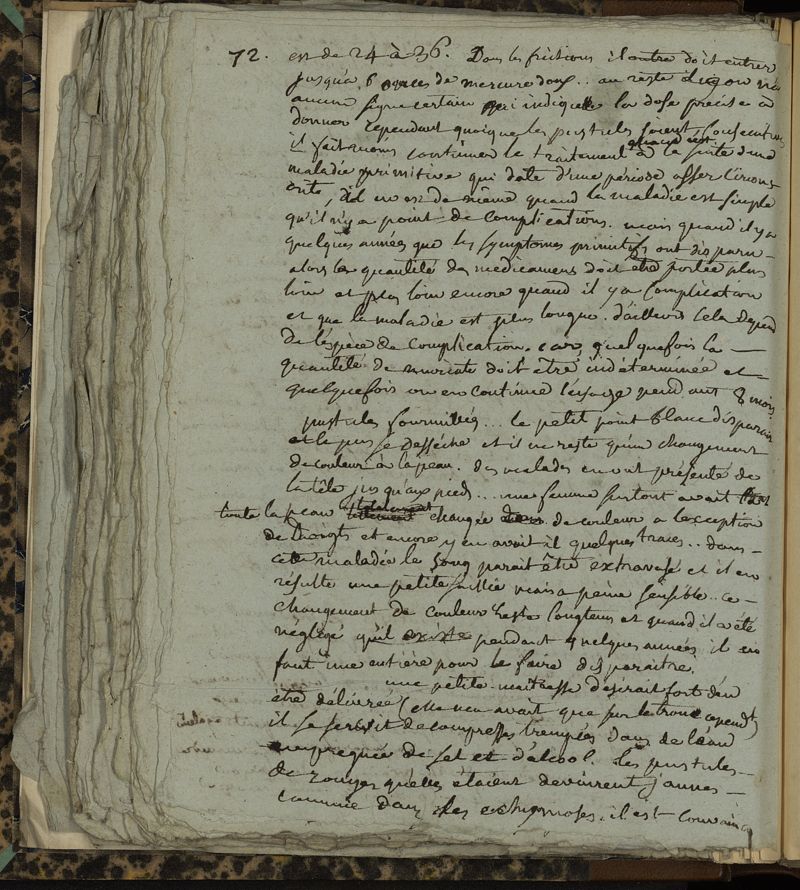 72. est de 24 à 36. Dans les frictions il entre doit entrer
jusqu'à 6 onces de mercure doux .. au reste on n'a
aucun signe certain qui indique la dose precise a
donner cependant quoique les pustules soient consecutives
il faut moins continuer le traitement quand est a la suite d'une
maladie primitive qui date d'une période assez
, il en est de même quand la maladie est simple
qu'il n'y a point de complications. mais quand il y a
quelques années que les symptomes primitifs ont disparu -
alors la quantité des medicamens doit être portée plus
loin et plus loin encore quand il y a complication
et que la maladie est plus longue. d'ailleurs cela depend
de l'espece de complication. car quelquefois la -
quantité de muriate doit être indéterminée et -
quelquefois on en continue l'usage pendant 8 mois
pustules fourmillées ... le petit point blanc disparait
et le pus se desséche et il ne reste qu'un changement
de couleur à la peau. des malades en ont présenté de
la tête jusqu'aux pieds .. une femme surtout avait
toute la peau changée de couleur a l'exception
de doigts et encore y en avait il quelques traces .. dans -
cette maladie le sang parait être extravasé et il en
résulte une petite saillie mais a peine sensible .. ce -
changement de couleur reste longtems et quand il a été
négligé qu'il existe pendant quelques années il en
faut une entière pour le faire disparaitre.
une petite maitresse desirait fort d'en
être délivrée (elle n'en avait que sur le tronc cependt)
il se servit de compresses trempées dans de l'eau
impregnée de sel et d'alcool. les pustules -
de rouges qu'elles étaient devinrent jaunes -
comme dans les echymoses. il est convaincu